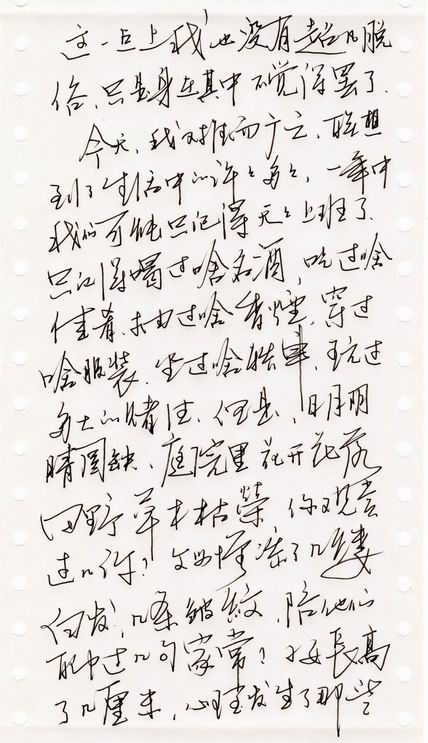 这一点上我也没有超凡脱
俗，只是身在其中不觉得罢了.
今天，我对推而广之，联想
到了生活中的许许多多，一年中
我们可能只记得天天上班了.
只记得喝过啥名酒，吃过啥
佳肴.抽过啥香烟，穿过
啥服装、坐过啥轿車，玩过
多大的赌注.但是，月明
晴圆缺、庭院里花开花落
田野草木枯荣，你观赏
过几许？父母增添了几缕
白发，几条皱纹，陪他们
聊过几句家常？小女長高
了几厘米，心理发生了那些